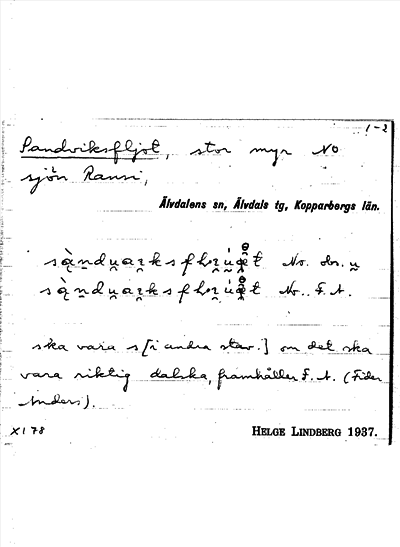 1-2
Sandviksfljot, stor myr NO
sjön Ranni,
Älvdalens sn, Älvdals tg, Kopparbergs län.
No. obs. u̯
No. F. A.
ska vara s [i andra stav.] om det ska
vara riktig dalska, framhåller F. A. (Fider
Anders).
XI 78
HELGE LINDBERG 1937.